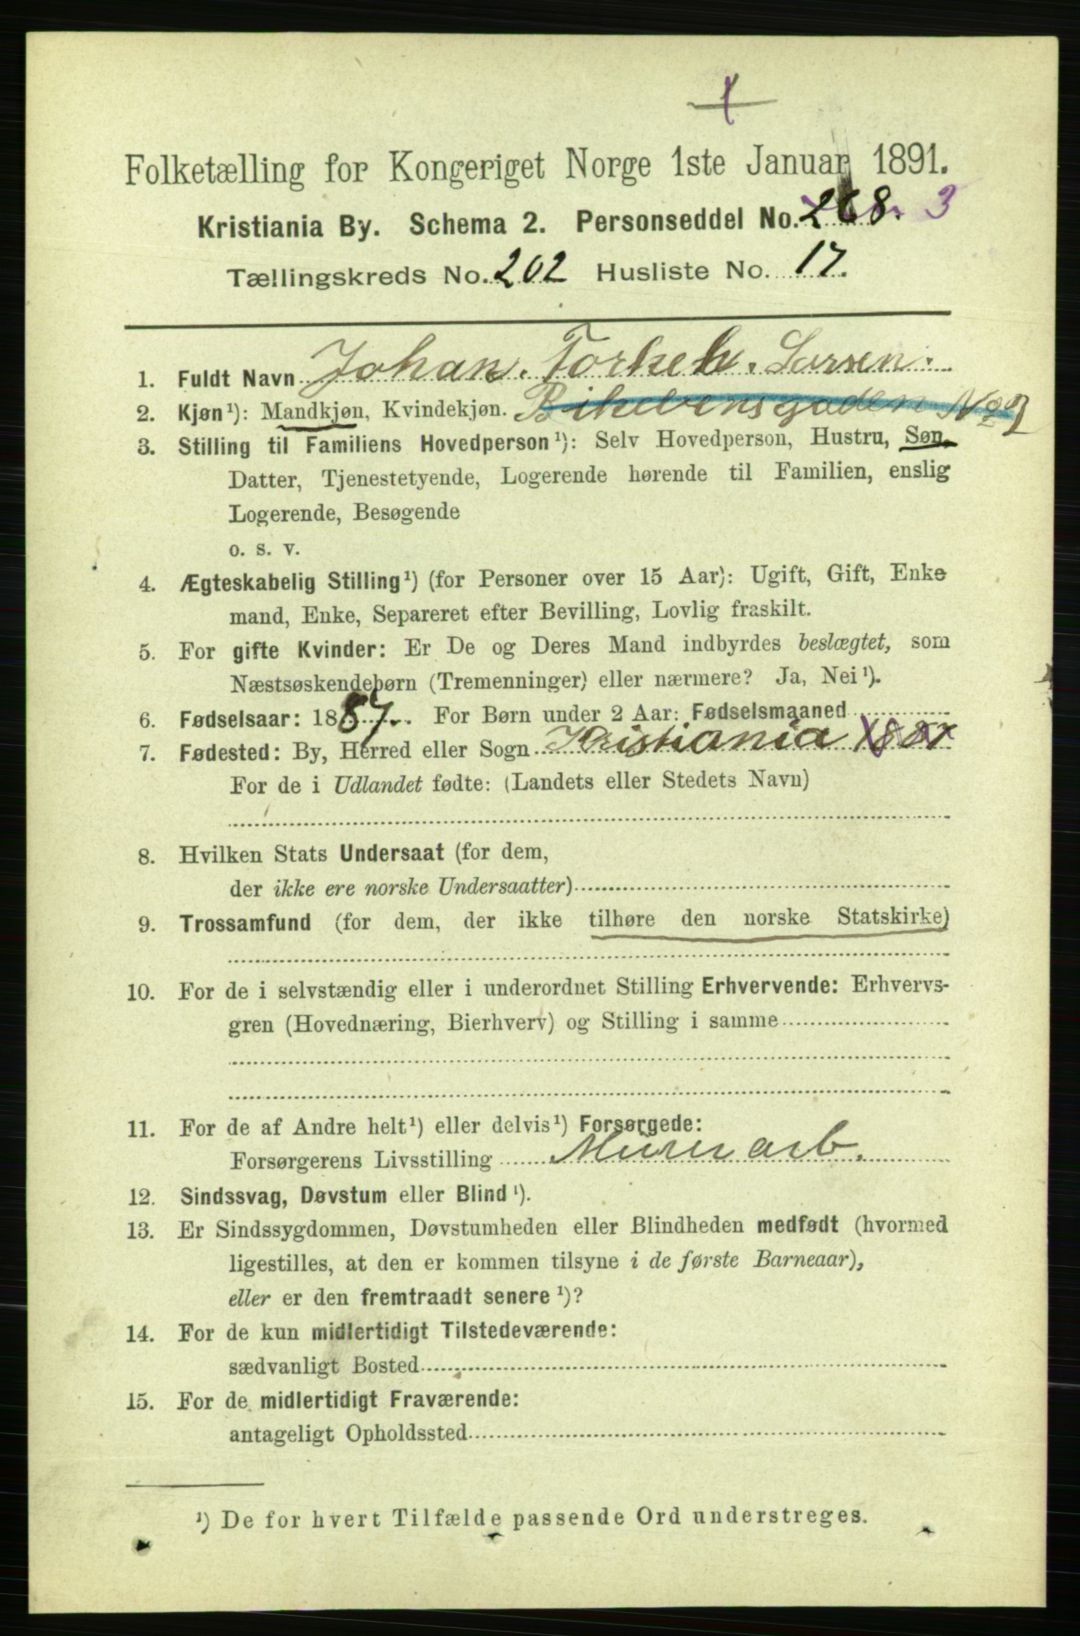 Folketælling for Kongeriget Norge 1ste Januar 1891.
Kristiania By. Schema 2. Personseddel No. 268. 3
Tællingskreds No. 202 Husliste No. 17.
1. Fuldt Navn Johan. Torkel. Larsen.
2. Kjøn¹): Mandkjøn, Kvindekjøn. No 9
3. Stilling til Familiens Hovedperson¹): Selv Hovedperson, Hustru, Søn,
Datter, Tjenestetyende, Logerende hørende til Familien, enslig
Logerende, Besøgende
o. s. v.
4. Ægteskabelig Stilling¹) (for Personer over 15 Aar): Ugift, Gift, Enke
mand, Enke, Separeret efter Bevilling, Lovlig fraskilt.
5. For gifte Kvinder: Er De og Deres Mand indbyrdes beslægtet, som
Næstsøskendebørn (Tremenninger) eller nærmere? Ja, Nei¹).
6. Fødselsaar: 1887. For Børn under 2 Aar: Fødselsmaaned
7. Fødested: By, Herred eller Sogn Kristiania
For de i Udlandet fødte: (Landets eller Stedets Navn)
8. Hvilken Stats Undersaat (for dem,
der ikke ere norske Undersaatter)
9. Trossamfund (for dem, der ikke tilhøre den norske Statskirke)
10. For de i selvstændig eller i underordnet Stilling Erhvervende: Erhvervs-
gren (Hovednæring, Bierhverv) og Stilling i samme
11. For de af Andre helt¹) eller delvis¹) Forsørgede:
Forsørgerens Livsstilling Murerarb.
12. Sindssvag, Døvstum eller Blind¹).
13. Er Sindssygdommen, Døvstumheden eller Blindheden medfødt (hvormed
ligestilles, at den er kommen tilsyne i de første Barneaar),
eller er den fremtraadt senere¹)?
14. For de kun midlertidigt Tilstedeværende:
sædvanligt Bosted
15. For de midlertidigt Fraværende:
antageligt Opholdssted
¹) De for hvert Tilfælde passende Ord understreges.